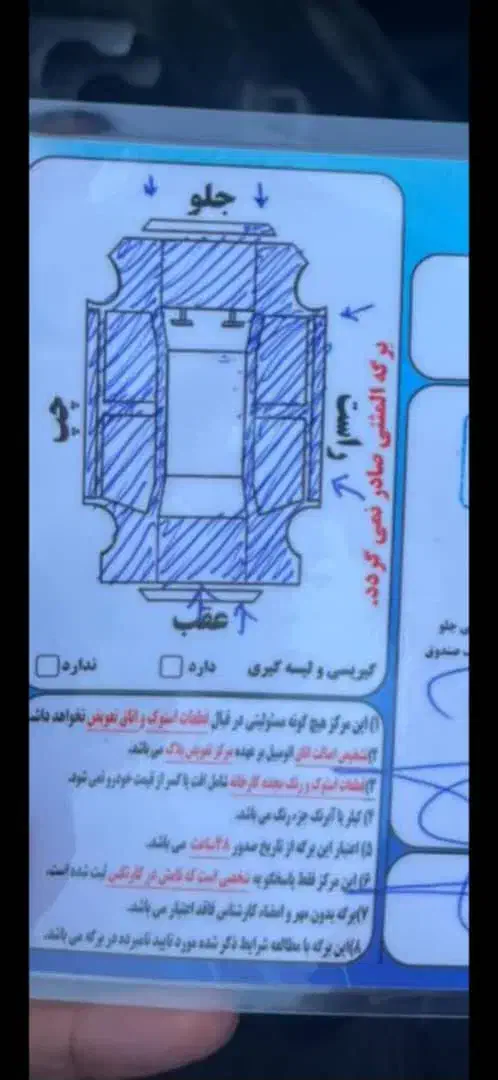 جلو
راست
چپ
عقب
برگه المثنی صادر نمی گردد.
گیریسی و لیسه گیری دارد ندارد
۱) این مرکز هیچ گونه مسئولیتی در قبال قطعات استوک و اتاق تعویض نخواهد داشت
۲) تشخیص اصالت اتاق اتومبیل بر عهده مرکز تعویض پلاک می باشد.
۳) قطعات استوک و رنگ مجدد کارخانه شامل افت یا کسر از قیمت خودرو نمی شود.
۴) کیلر یا آبرنگ جزء رنگ می باشد.
۵) اعتبار این برگه از تاریخ صدور ۴۸ ساعت می باشد.
۶) این مرکز فقط پاسخگو به شخصی است که نامش در کارتکس ثبت شده است.
۷) برگه بدون مهر و امضاء کارشناس فاقد اعتبار می باشد.
۸) این برگه با مطالعه شرایط ذکر شده مورد تایید نامبرده در برگه می باشد.
جلو
صندوق